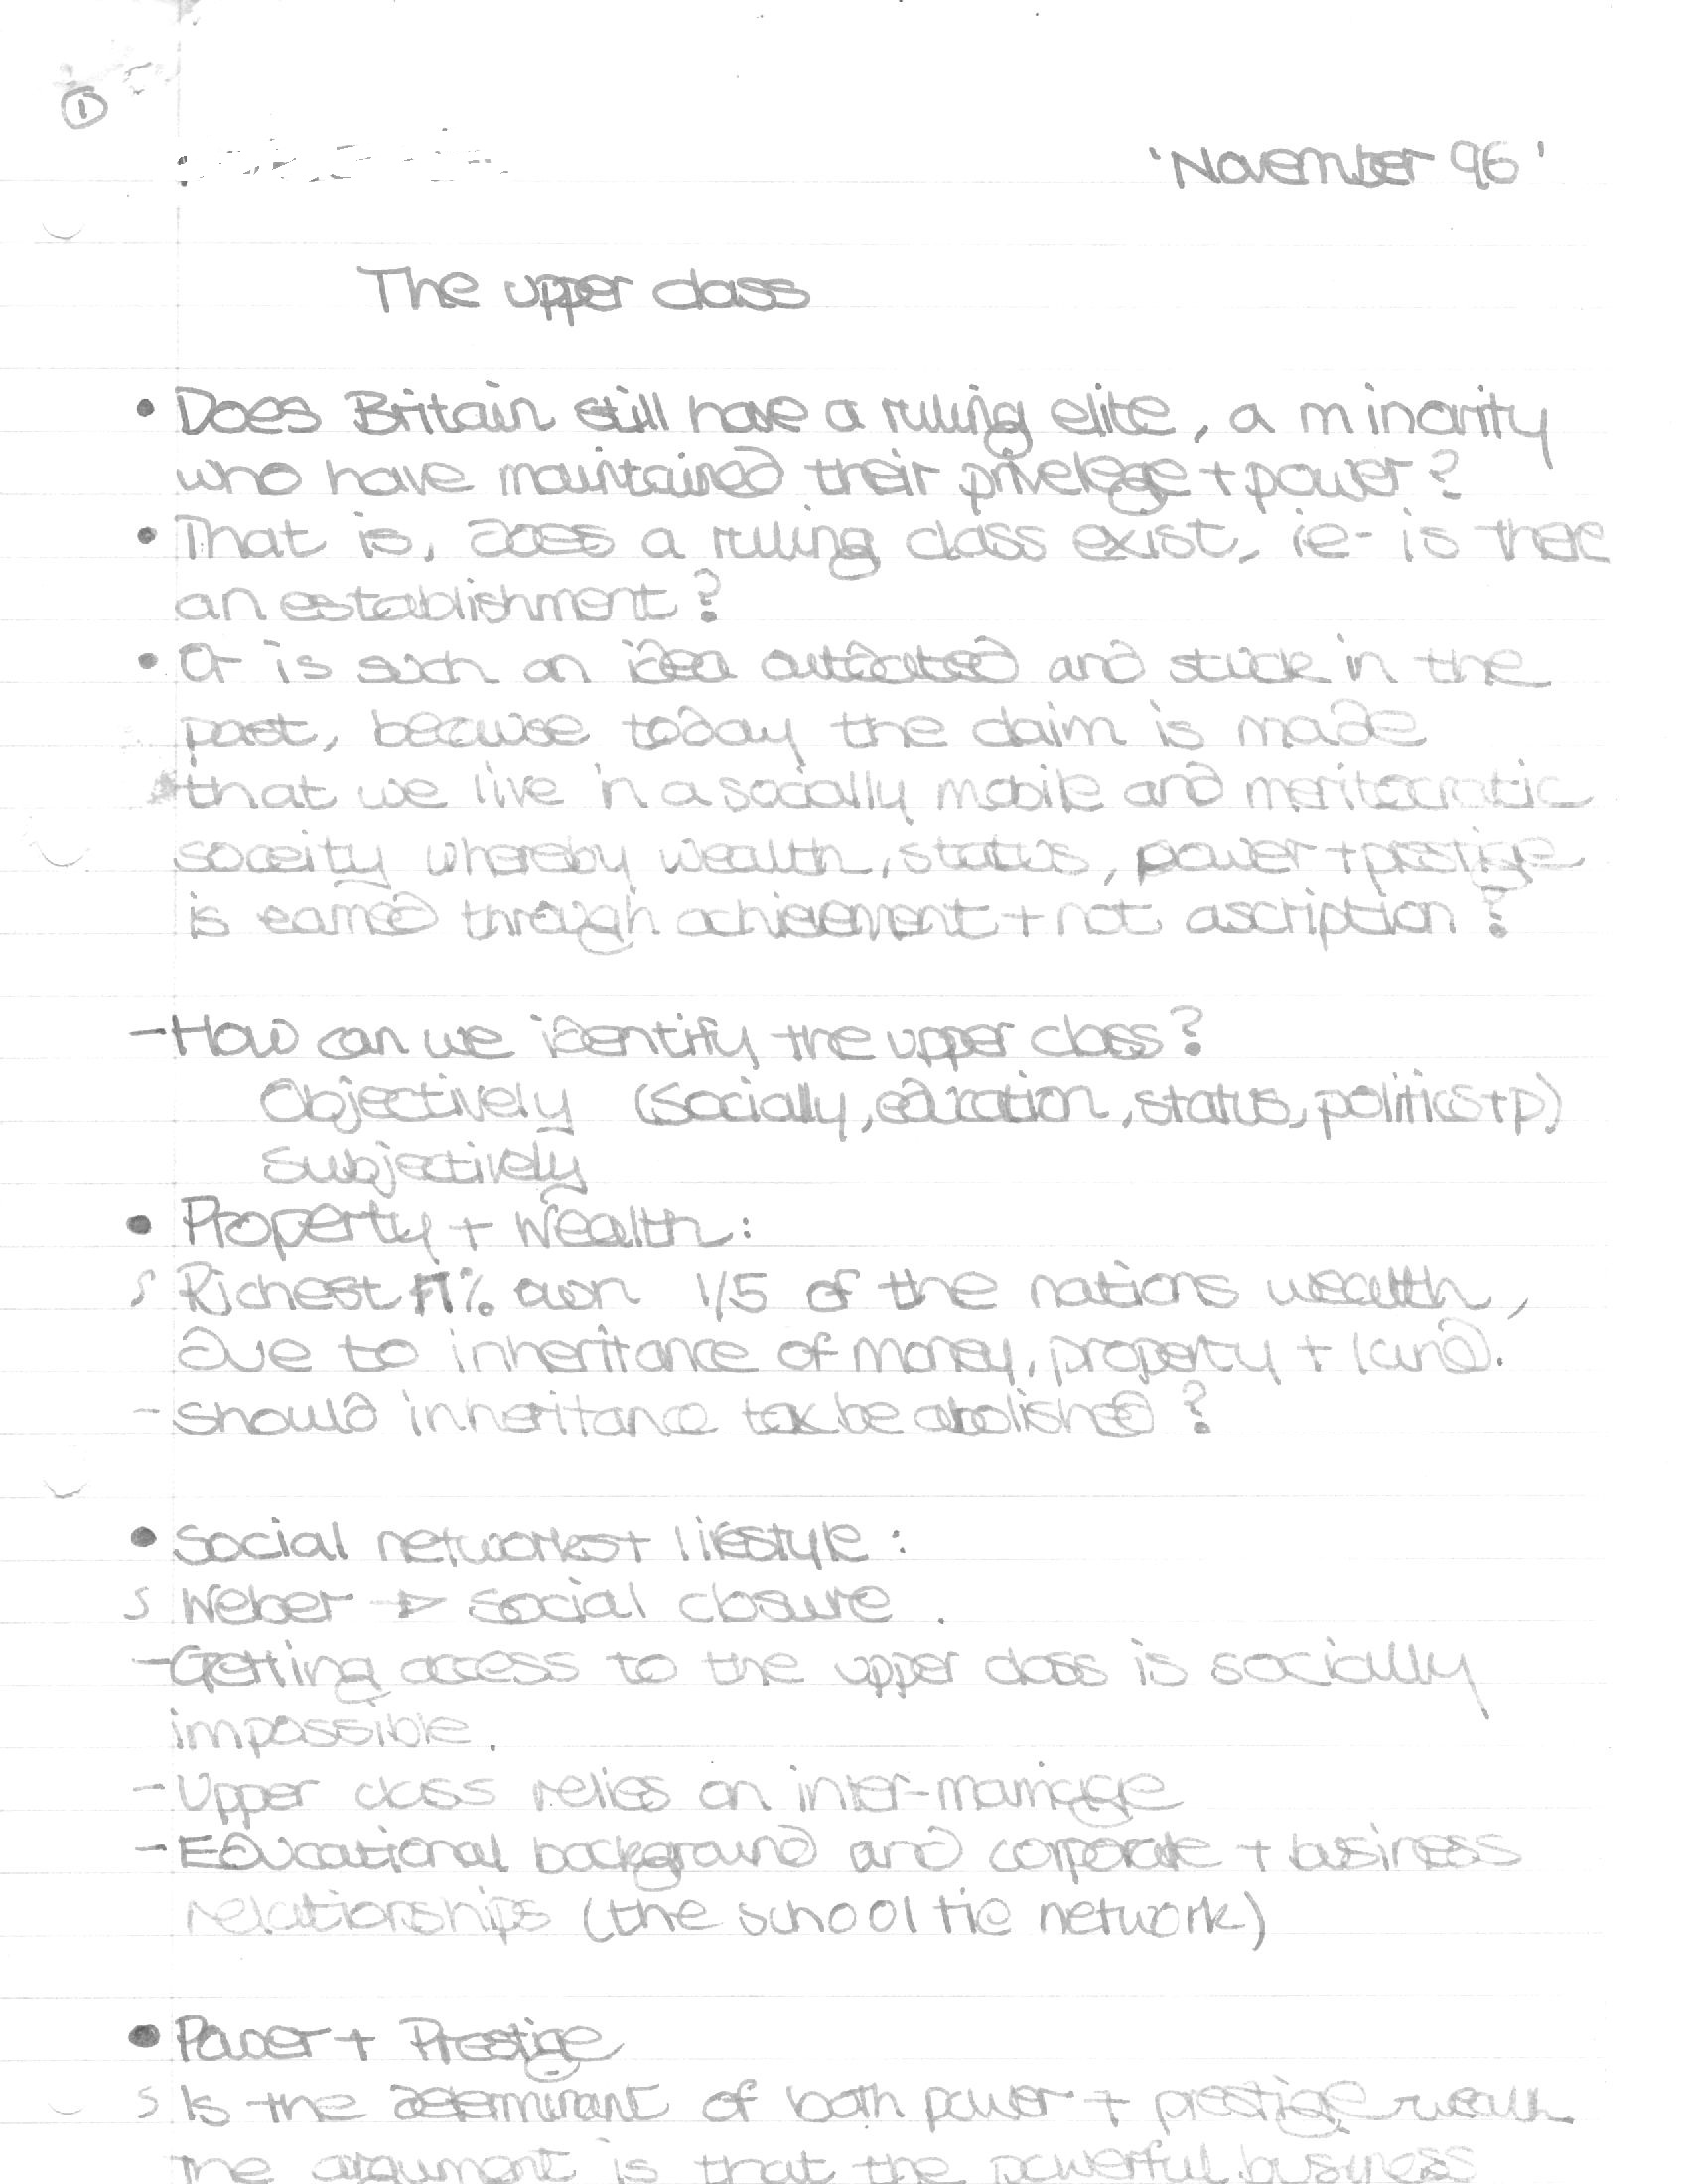 ①
'November 96'
The upper class
• Does Britain still have a ruling elite, a minority
who have maintained their privelege + power?
• That is, does a ruling class exist, ie- is there
an establishment?
• Or is such an idea outdated and stuck in the
past, because today the claim is made
that we live in a socially mobile and meritocratic
soceity whereby wealth, status, power + prestige
is earned through achievement + not ascription?
- How can we identify the upper class?
Objectively (socially, education, status, politics + p)
Subjectively
• Property + Wealth:
S Richest 1% own 1/5 of the nations wealth,
due to inheritance of money, property + land.
- Should inheritance tax be abolished?
• Social networks + lifestyle:
S Weber → social closure.
- Getting access to the upper class is socially
impossible.
- Upper class relies on inter-marriage
- Educational background and corporate + business
relationships (the school tie network)
• Power + Prestige
S Is the determinant of both power + prestige wealth
The argument is that the powerful business